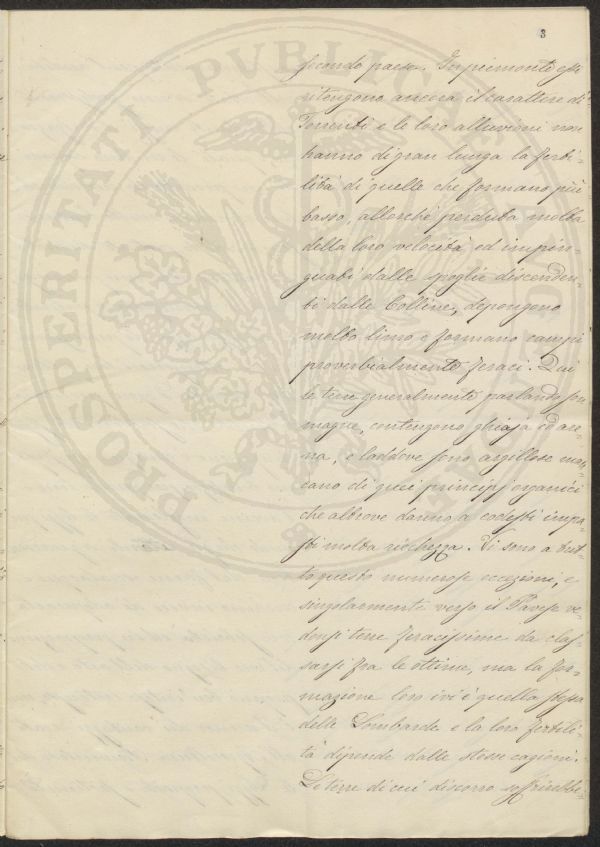 3
PROSPERITATI PVBLICAE
secondo paese. In piemonte essi
ritengono ancora il carattere di
Torrenti e le loro alluvioni non
hanno di gran lunga la ferti-
lità di quelle che formano più
basso, allorché perduta molta
della loro velocità ed impin-
guati dalle spoglie discenden-
ti dalle Colline, depongono
molto limo e formano campi
proverbialmente feraci. Qui
le terre generalmente parlando son
magre, contengono ghiaja ed are-
na, e laddove sono argillose man-
cano di quei principj organici
che altrove danno a codesti impa-
sti molta ricchezza. Vi sono a tut-
to questo numerose eccezioni, e
singolarmente verso il Pavese ve-
donsi terre feracissime da clas-
sarsi fra le ottime, ma la for-
mazione loro ivi è quella stessa
delle Lombarde e la loro fertili-
tà dipende dalle stesse cagioni.
Le terre di cui discorro soffrirebbe-